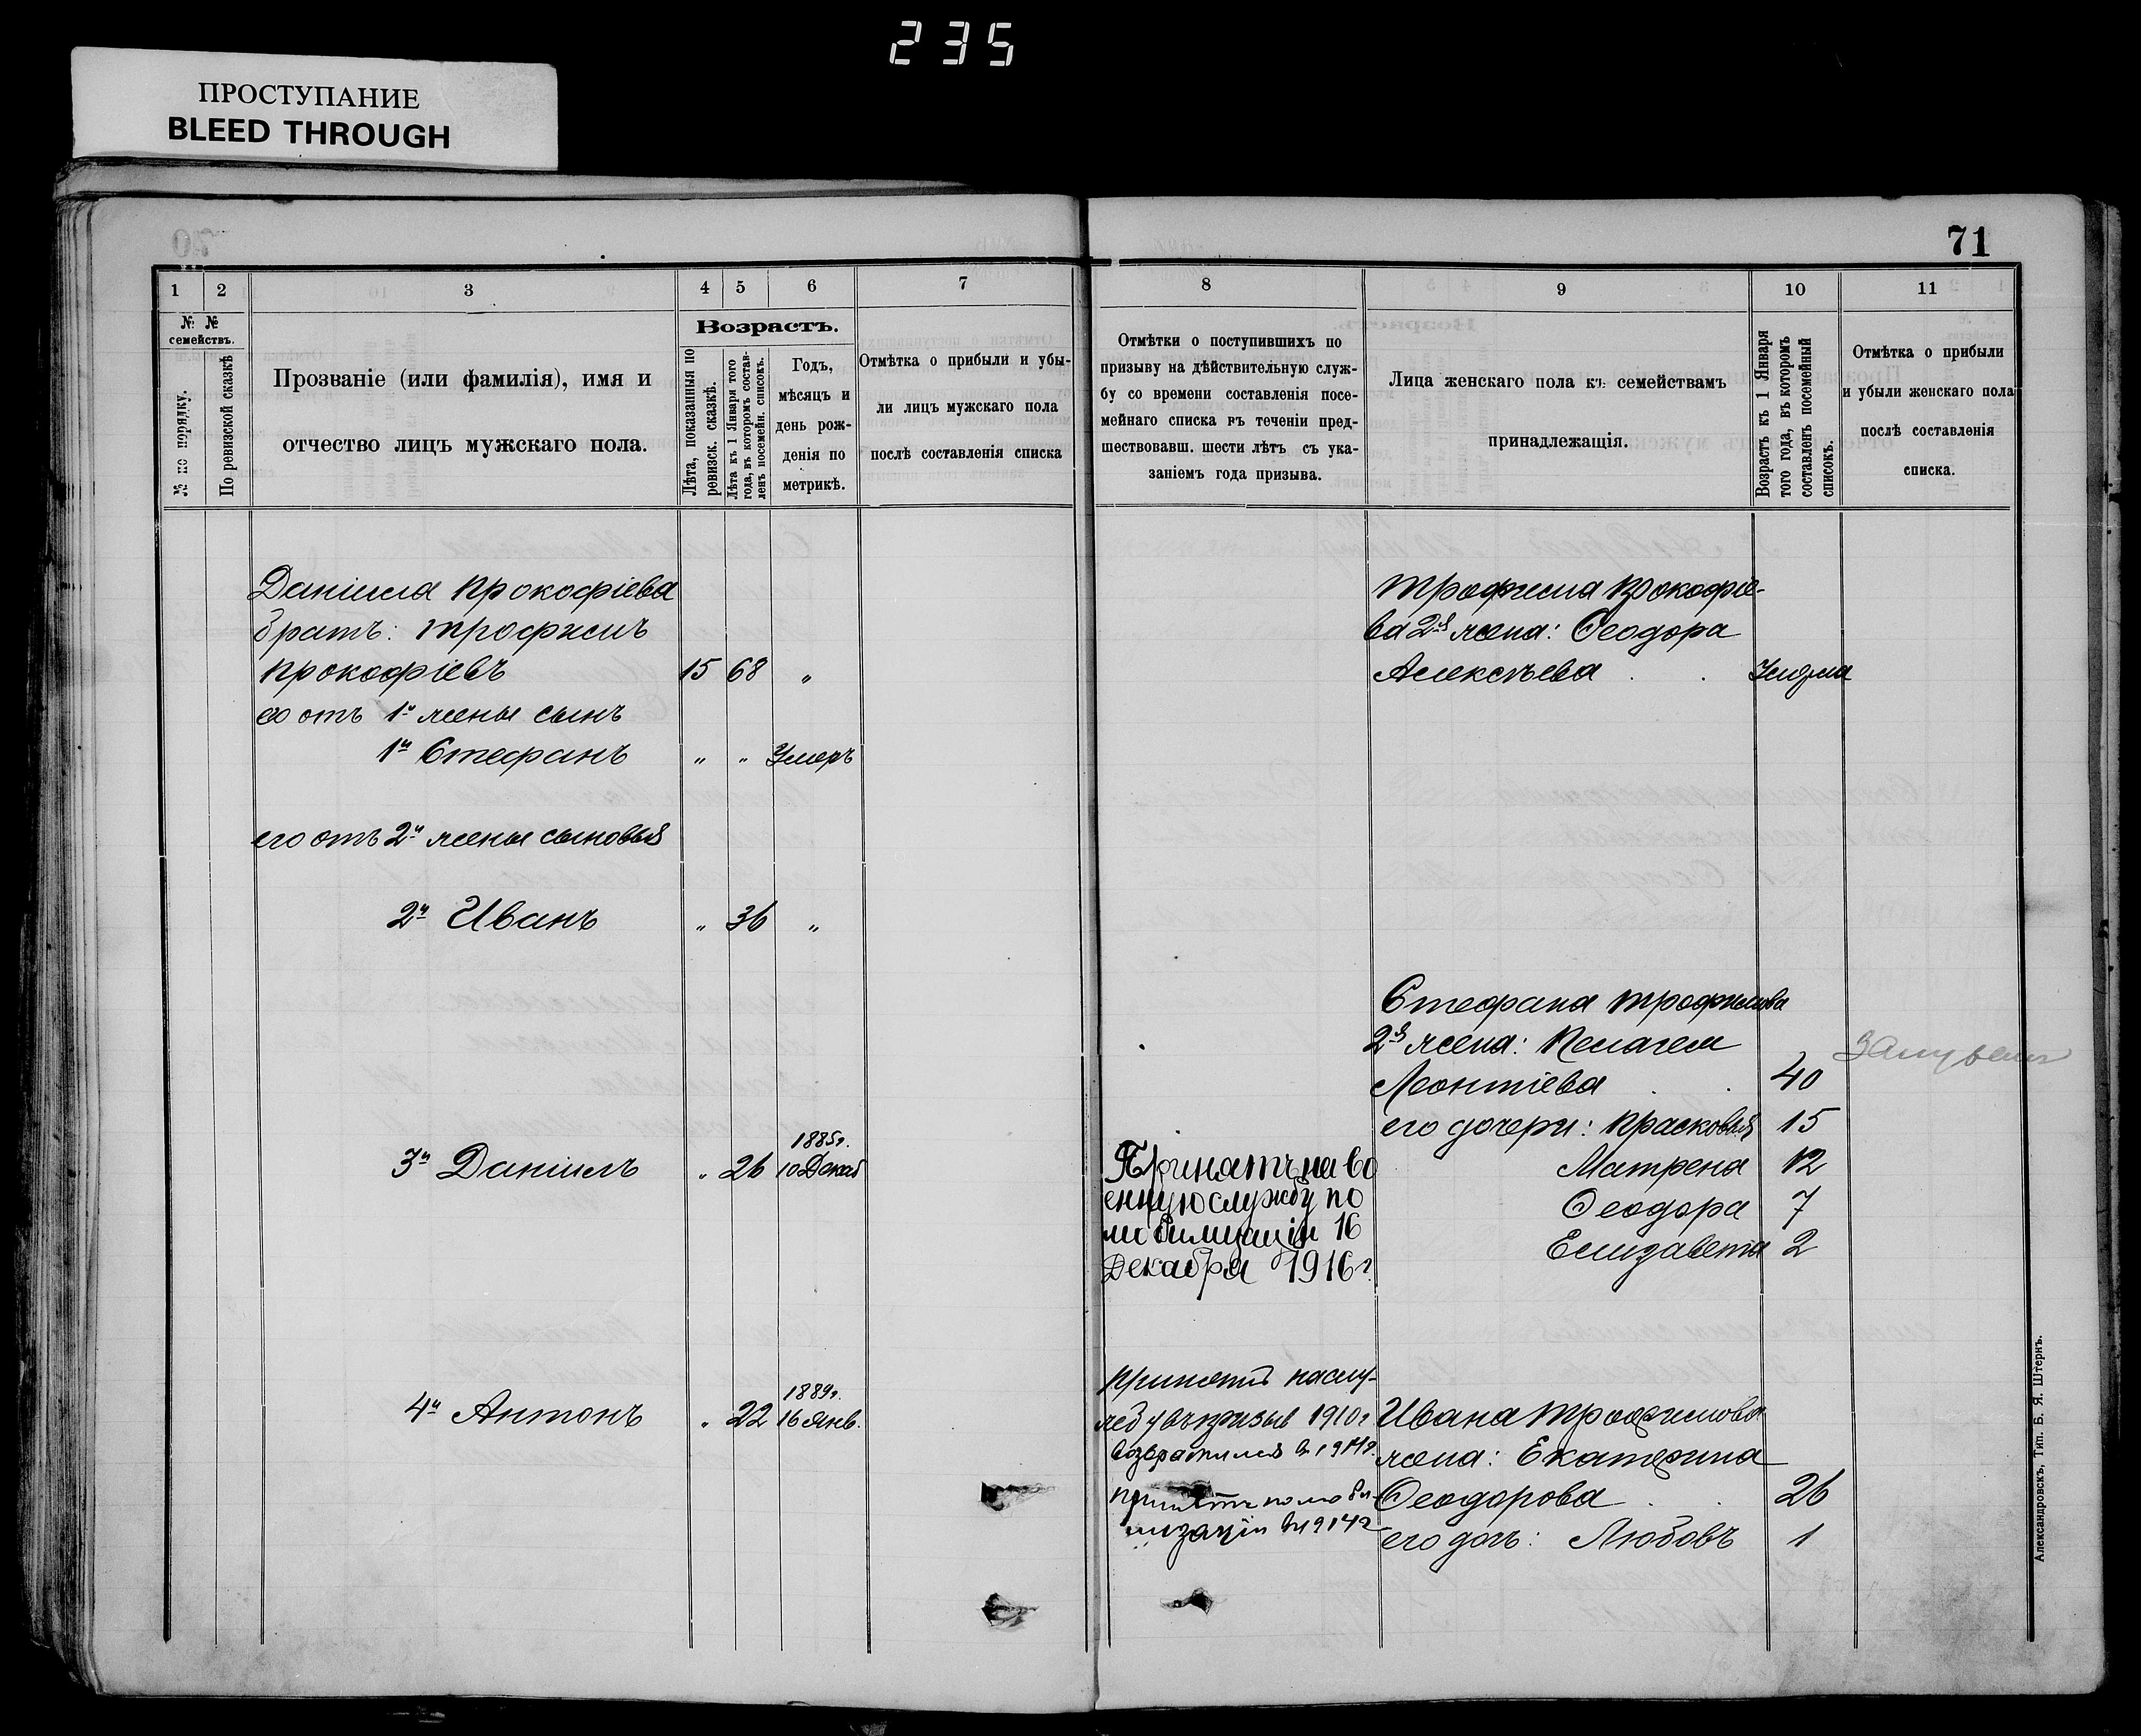 235
ПРОСТУПАНИЕ
BLEED THROUGH
71
1 2 3 4 5 6 7
№ № семействъ.
№ по порядку.
По ревизской сказкѣ
Прозваніе (или фамилія), имя и
отчество лицъ мужскаго пола.
Возрастъ.
Лѣта, показанныя по
ревизск. сказкѣ.
Лѣта къ 1 Января того
года, въ которомъ состав-
ленъ посемейн. списокъ.
Годъ,
мѣсяцъ и
день рож-
денія по
метрикѣ.
Отмѣтка о прибыли и убы-
ли лицъ мужскаго пола
послѣ составленія списка
Даніила Прокофіева
братъ: Трофимъ
Прокофіевъ 15 68 "
его отъ 1й жены сынъ
1й Стефанъ " " Умеръ
его отъ 2й жены сыновья
2й Иванъ " 36 "
1885г.
3й Даніилъ " 26 10 Декаб
1889г.
4й Антонъ " 22 16 Янв.
8 9 10 11
Отмѣтки о поступившихъ по
призыву на дѣйствительную служ-
бу со времени составленія посе-
мейнаго списка въ теченіи пред-
шествовавш. шести лѣтъ съ ука-
заніемъ года призыва.
Лица женскаго пола къ семействамъ
принадлежащія.
Возрастъ къ 1 Января
того года, въ которомъ
составленъ посемейный
списокъ.
Отмѣтка о прибыли
и убыли женскаго пола
послѣ составленія
списка.
Трофима Прокофіе-
ва 2я жена: Феодора
Алексѣева Умерла
Стефана Трофимова
2я жена: Пелагея
Леонтіева 40
его дочери: Прасковья 15
Матрена 12
Феодора 7
Елизавета 2
Принятъ на во
енную службу по
мобилизаціи 16
Декабря 1916г.
Принятъ на слу-
жбу въ призыв 1910г
возвратился в 1914г.
Принятъ по моби-
лизаціи в 1914г
Ивана Трофимова
жена: Екатерина
Феодорова 26
его дочь: Любовь 1
Александровскъ, Тип. Б. Я. Штернъ.